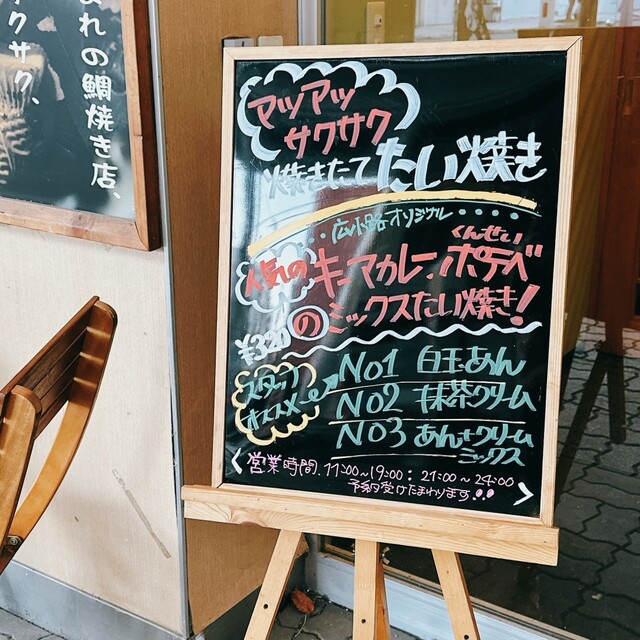 まれの鯛焼き店、
クサク、
アツアツ
サクサク
焼きたて たい焼き
広小路オリジナル
くんせい
人気の キーマカレー、ポテベ
¥320 の ミックスたい焼き!
スタッフ
オススメ
No1 白玉あん
No2 抹茶クリーム
No3 あん+クリーム
ミックス
営業時間. 11:00~19:00: 21:00~24:00
予約受けたまわります!!